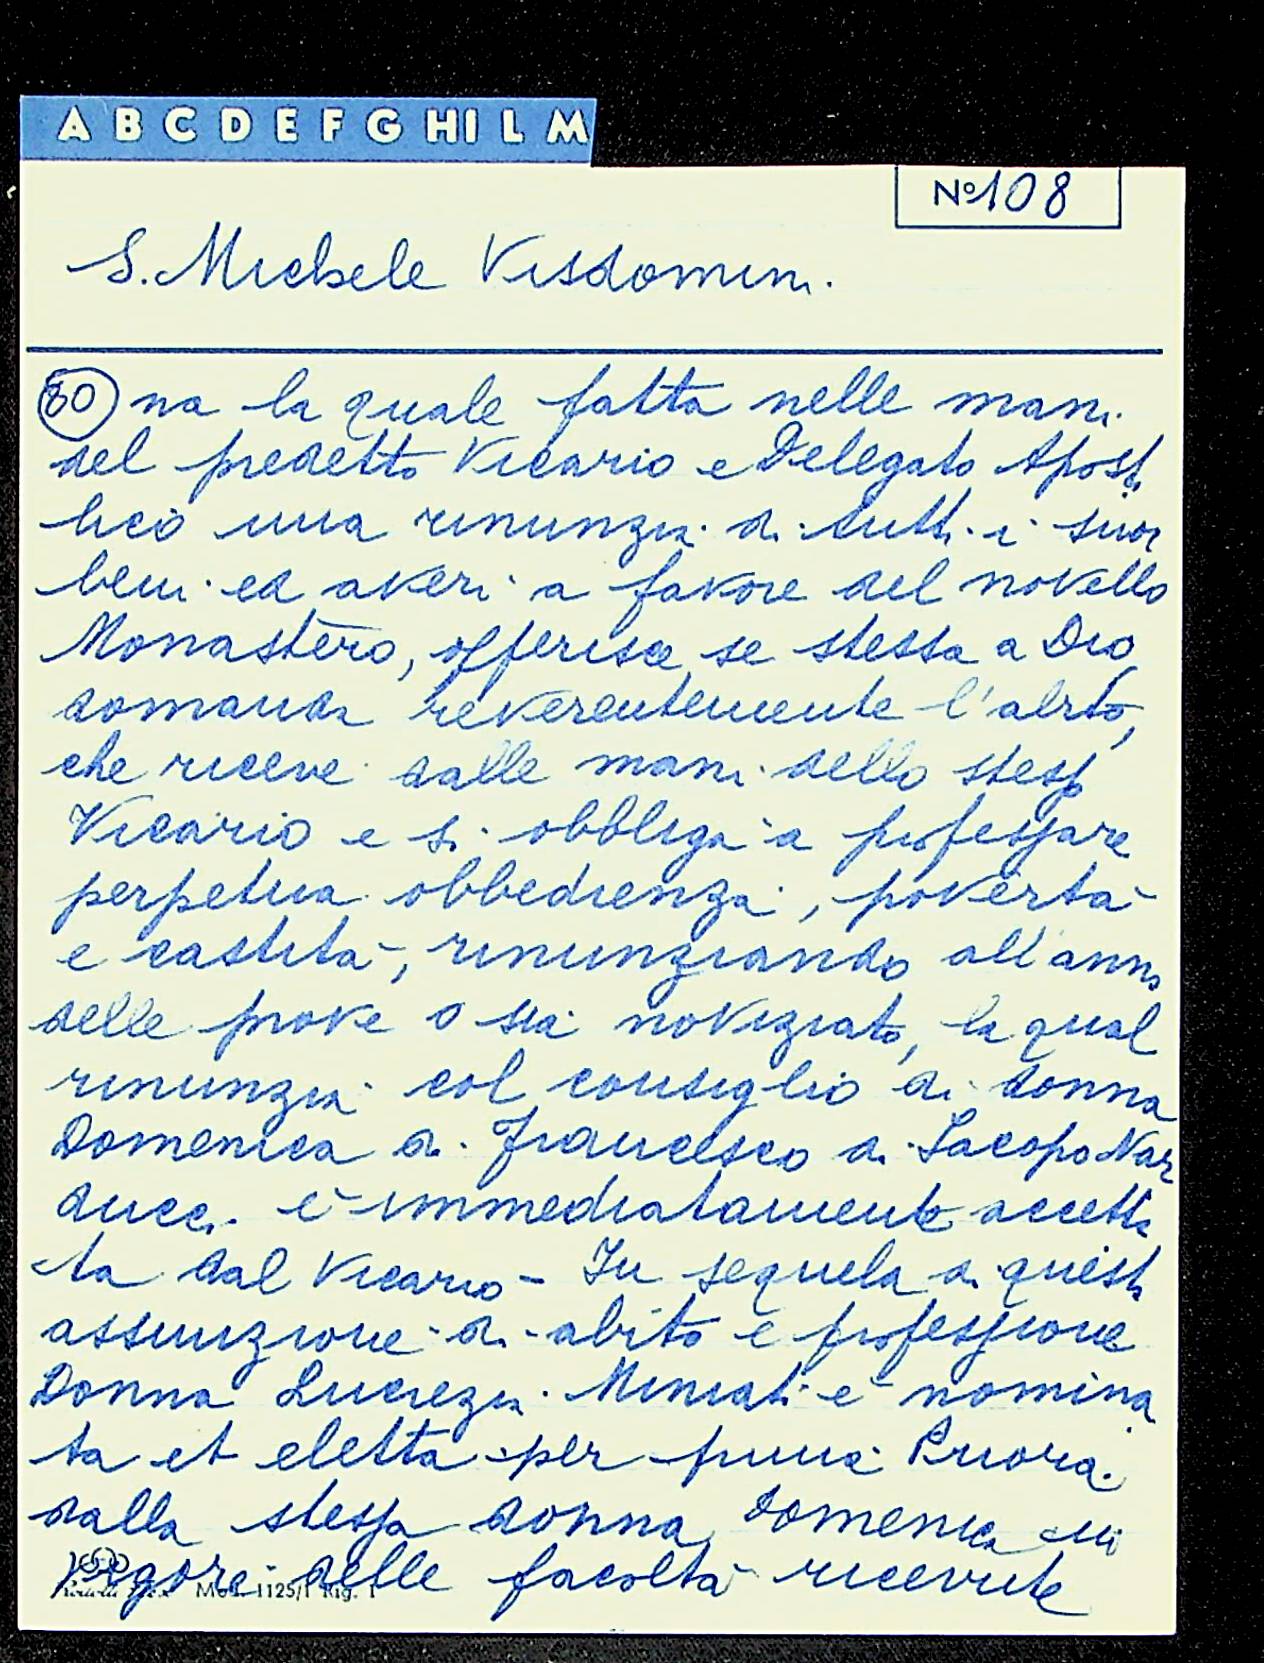 A B C D E F G HI L M
Nº 108
S. Michele Visdomini.
80 na la quale fatta nelle mani
del predetto Vicario e Delegato Aposto
lico una rinunzia di tutti i suoi
beni ed averi a favore del novello
Monastero, offerisce se stessa a Dio,
domanda reverentemente l'abito,
che riceve dalle mani dello stesso
Vicario e si obbliga a professare
perpetua obbedienza, povertà
e castità, rinunziando all'anno
delle prove o sia noviziato, la qual
rinunzia col consiglio di donna
Domenica di Francesco di Jacopo Nar
ducci è immediatamente accetta
ta dal Vicario - In sequela di questa
assunzione di abito e professione
Donna Lucrezia Miniati è nomina
ta et eletta per prima Priora
dalla stessa donna Domenica in
vigore delle facoltà ricevute
Mod. 1125/1 Rig. 1